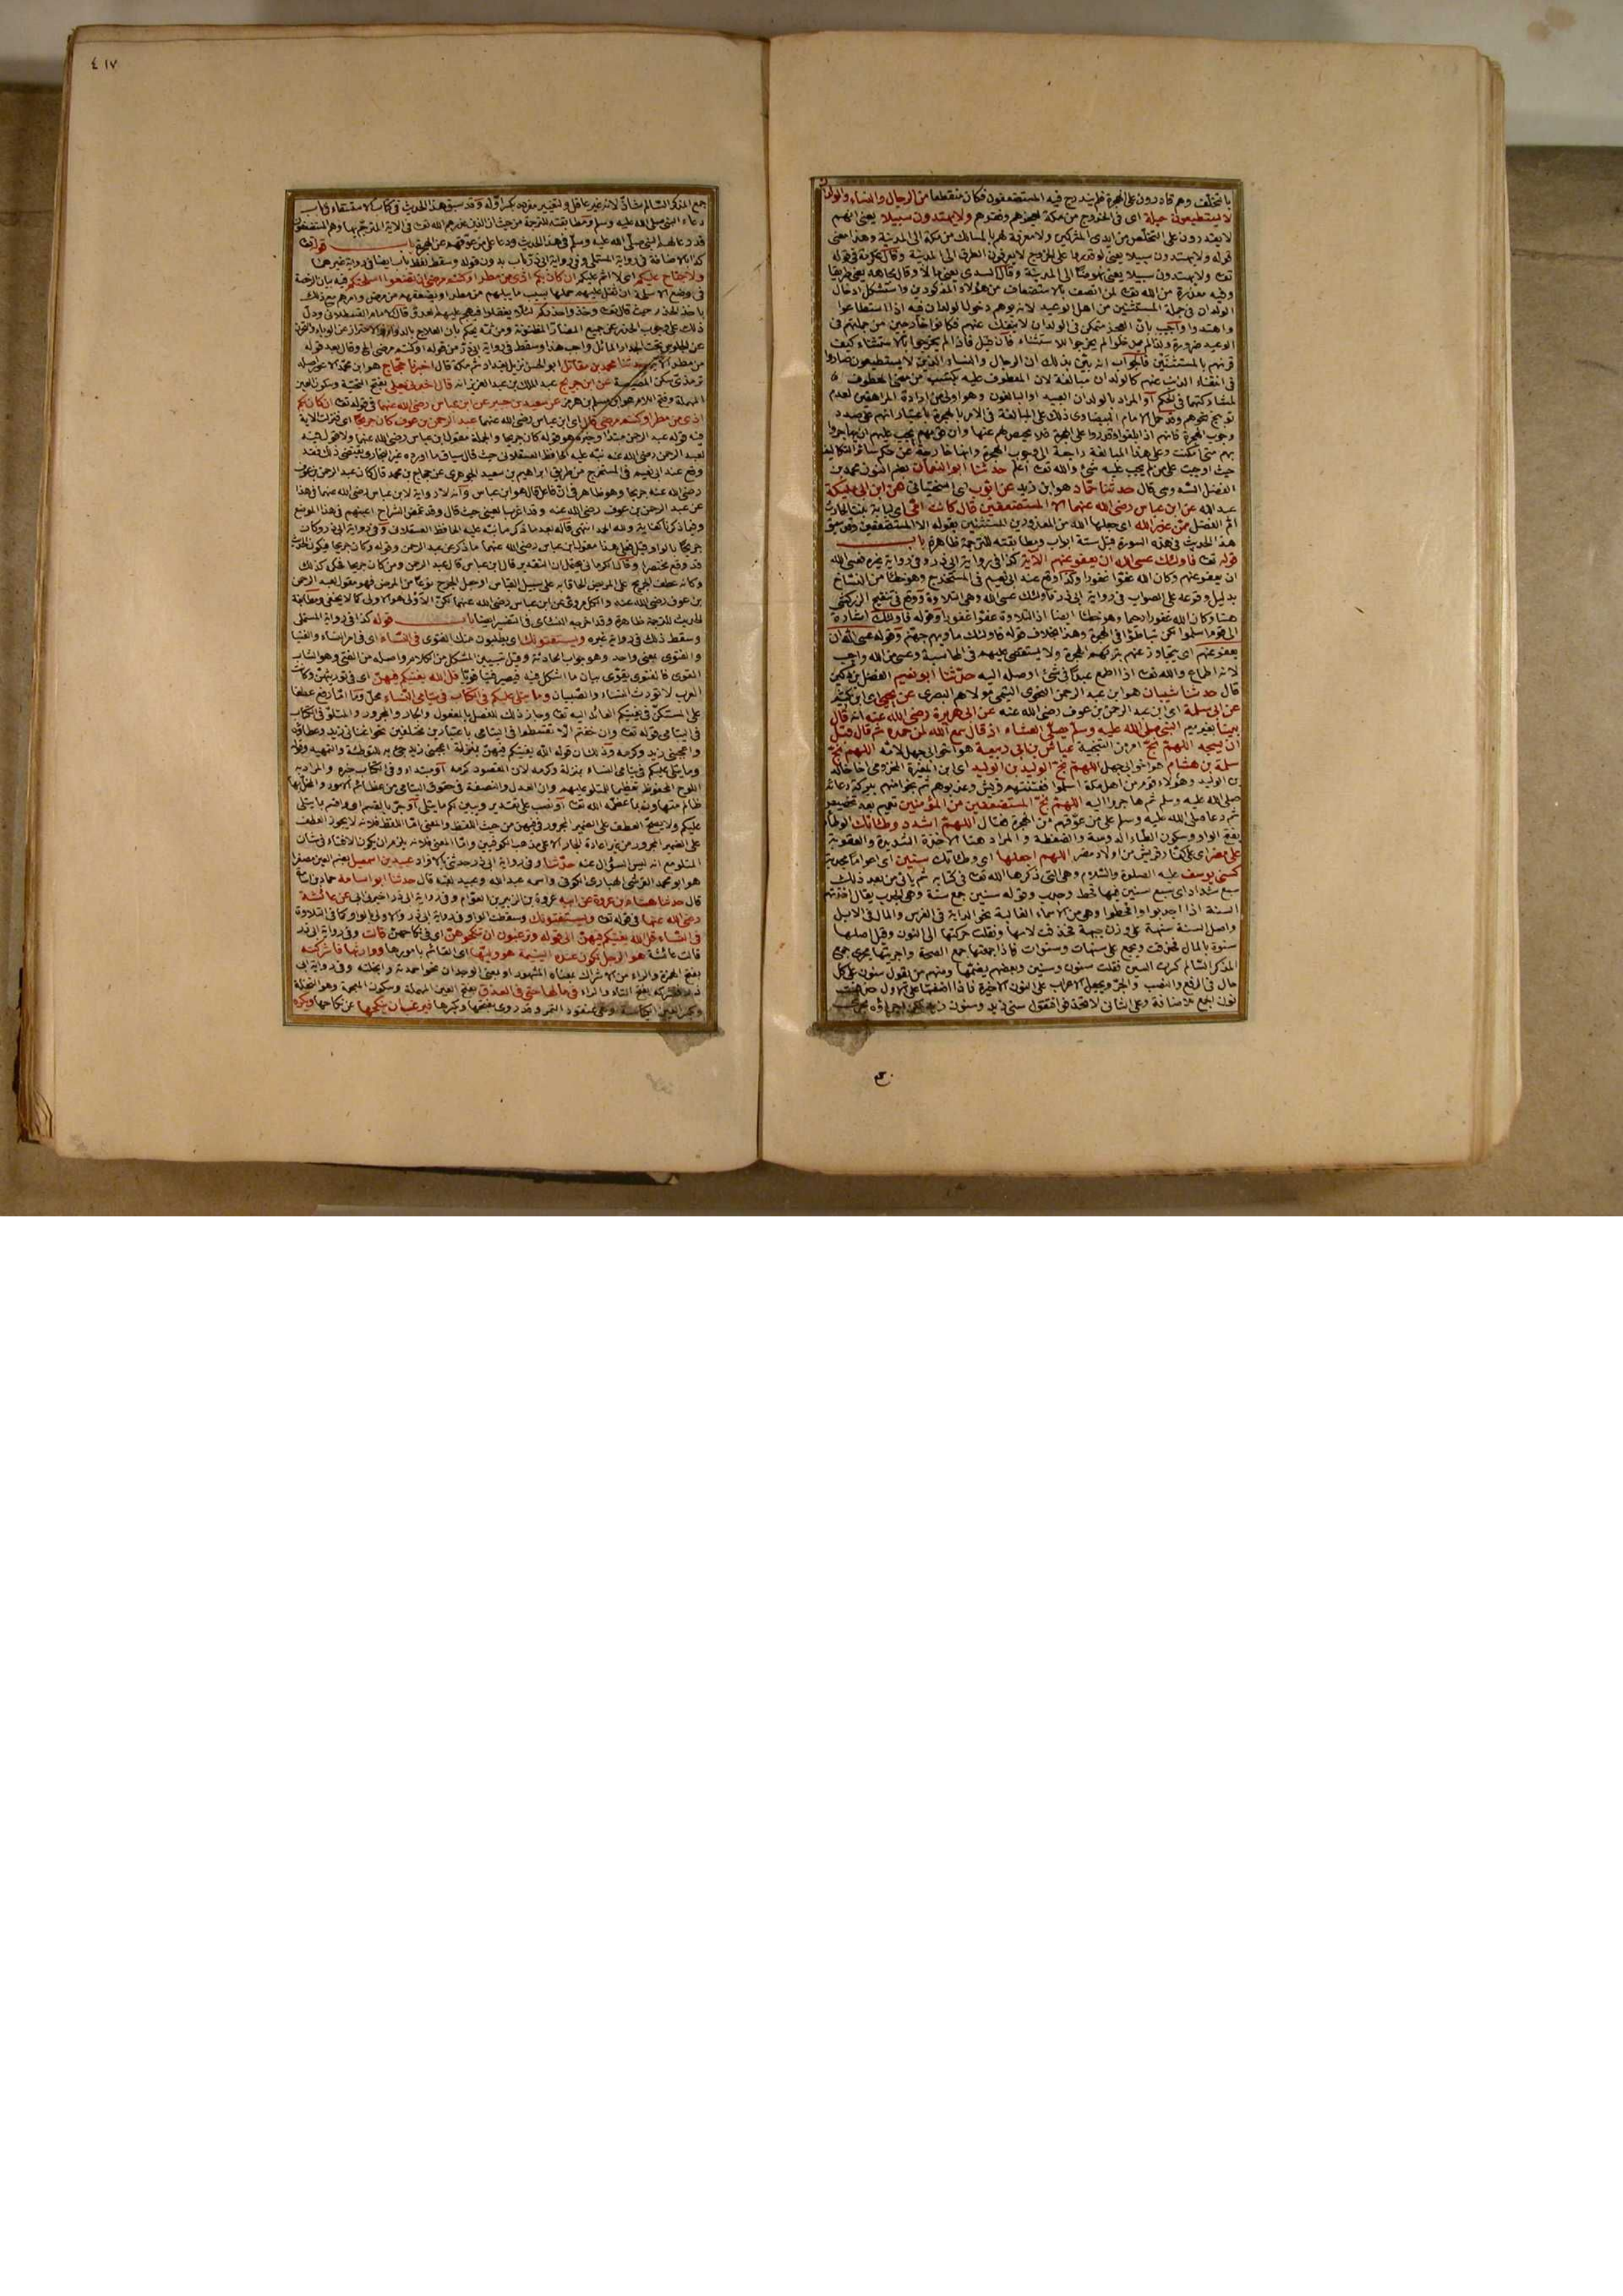 بالتخلف وهم قادرون على الهجرة فلم يندرج فيه المستضعفون فكان منقطعا من الرجال والنساء والولدان
لا يستطيعون حيلة اى فى الخروج من مكة لعجزهم وفقرهم ولا يهتدون سبيلا يعنى انهم
لا يقدرون على التخلص من ايدى المشركين ولا معرفة لهم بالمسالك من مكة الى المدينة وهذا معنى
قوله ولا يهتدون سبيلا يعنى لو قدروا على الخروج لا يعرفون الطرق الى المدينة وقال عكرمة فى قوله
تعـ ولا يهتدون سبيلا يعنى نهوضا الى المدينة وقال السدى يعنى مالا وقال مجاهد يعنى طريقا
وفيه معذرة من الله تعـ لمن اتصف بالاستضعاف من هؤلاء المذكورين واستشكل ادخال
الولدان فى جملة المستثنين من اهل الوعيد لانه يوهم دخول الولدان فيه اذا استطاعوا
واهتدوا واجيب بان العجز متمكن فى الولدان لا ينفك عنهم فكانوا خارجين من جملتهم فى
الوعيد ضرورة فان قيل فاذا لم يخرجوا بالاستثناء كيف
قرنهم بالمستثنين فالجواب انه بين بذلك ان الرجال والنساء الذين لا يستطيعون صاروا
فى انتفاء الذنب عنهم كالولدان مبالغة لان المعطوف عليه يكتسب من معنى المعطوف
لمشاركتهما فى الحكم او المراد بالولدان العبيد او البالغون وهو اولى من ارادة المراهقين لعدم
توبيخ نحوهم وقد حمل الامام البيضاوى ذلك على المبالغة فى الامر بالهجرة باعتبار انهم على صدد
وجوب الهجرة فانهم اذا بلغوا وقدروا على الهجرة فلا محيص لهم عنها وان قوامهم يجب عليهم ان يهاجروا
بهم متى امكنت وعلى هذا المبالغة راجعة الى وجوب الهجرة وانها خارجة عن حكم سائر التكاليف
حيث اوجبت على من لم يجب عليه شئ والله تعـ اعلم حدثنا ابو النعمان بضم النون محمد بن
الفضل السدوسى قال حدثنا حماد هو ابن زيد عن ايوب اى السختيانى عن ابن ابى مليكة
عبد الله عن ابن عباس رضى الله عنهما الا المستضعفين قال كانت امى اى لبابة بنت الحارث
ام الفضل ممن عذر الله اى جعلها الله من المعذورين المستثنين بقوله الا المستضعفين وقد سبق
هذا الحديث فى هذه السورة قبل ستة ابواب ومطابقته للترجمة ظاهرة باب
قوله تعـ فاولئك عسى الله ان يعفو عنهم الآية كذا فى رواية ابى ذر وفى رواية غيره فعسى الله
ان يعفو عنهم وكان الله عفوا غفورا وكذا وقع عند ابى نعيم فى المستخرج وهو خطأ من النساخ
بدليل وقوعه على الصواب فى رواية ابى ذر فاولئك عسى الله وهى التلاوة ووقع فى تنقيح الزركشى
هنا وكان الله غفورا رحيما وهو خطأ ايضا اذ التلاوة عفوا غفورا وقوله فاولئك اشارة
الى قوم اسلموا لكن تباطؤا فى الهجرة وهذا بخلاف قوله فاولئك مأويهم جهنم وقوله عسى الله ان
يعفو عنهم اى يتجاوز عنهم بتركهم الهجرة ولا يستقصى عليهم فى المحاسبة وعسى من الله واجب
لانه اطماع والله تعـ اذا اطمع عبدا فى شئ اوصله اليه حدثنا ابو نعيم الفضل بن دكين
قال حدثنا شيبان هو ابن عبد الرحمن النحوى التيمى مولاهم البصرى عن يحيى اى ابن كثير
عن ابى سلمة اى ابن عبد الرحمن بن عوف رضى الله عنه عن ابى هريرة رضى الله عنه انه قال
بينا بغير ميم النبى صلى الله عليه وسلم يصلى العشاء اذ قال سمع الله لمن حمده ثم قال قبل
ان يسجد اللهم نج امر من التنجية عياش بن ابى ربيعة هو اخو ابى جهل لامه اللهم نج
سلمة بن هشام هو اخو ابى جهل اللهم نج الوليد بن الوليد اى ابن المغيرة المخزومى اخا خالد
بن الوليد وهؤلاء قوم من اهل مكة اسلموا ففتنتهم قريش وعذبوهم ثم نجوا منهم ببركة دعائه
صلى الله عليه وسلم ثم هاجروا اليه اللهم نج المستضعفين من المؤمنين تعميم بعد تخصيص
ثم دعا صلى الله عليه وسلم على من عوقهم عن الهجرة فقال اللهم اشدد وطأتك الوطأة
بفتح الواو وسكون الطاء الدوسة والضغطة والمراد هنا الاخذة الشديدة والعقوبة
على مضر اى على كفار قريش من اولاد مضر اللهم اجعلها اى وطأتك سنين اى اعواما مجدبة
كسنى يوسف عليه الصلوة والسلام وهى التى ذكرها الله تعـ فى كتابه ثم يأتى من بعد ذلك
سبع شداد اى سبع سنين فيها قحط وجدب وقوله سنين جمع سنة وهى الجدب يقال اخذتهم
السنة اذا اجدبوا واقحطوا وهى من الاسماء الغالبة نحو الدابة فى الفرس والمال فى الابل
واصل السنة سنهة على وزن جبهة فحذفت لامها ونقلت حركتها الى النون وقيل اصلها
سنوة بالمال فحذفت ويجمع على سنهات وسنوات فاذا جمعتها جمع الصحة واجريتها مجرى جمع
المذكر السالم كسرت السين فقلت سنون وسنين وبعضهم يضمها ومنهم من يقول سنون على كل
حال فى الرفع والنصب والجر ويجعل الاعراب على النون الاخيرة فاذا اضفتها على الاول حذفت
نون الجمع للاضافة وعلى الثانى لا تحذفها فتقول سنى زيد وسنون زيد
٤١٧
جمع المذكر السالم شاذ لانه غير عاقل ولتغيير مفرده بكسر اوله وقد سبق هذا الحديث فى كتاب الاستسقاء فى باب
دعاء النبى صلى الله عليه وسلم ومطابقته للترجمة من حيث ان الذين عذرهم الله تعـ فى الآية المترجم بها وهم المستضعفون
قد دعا لهم النبى صلى الله عليه وسلم فى هذا الحديث ودعا على من عوقهم عن الهجرة باب قوله تعـ
كذا بالاضافة فى رواية المستملى وفى رواية ابى ذر باب بدون قوله وسقط لفظ باب ايضا فى رواية غيرهما
ولا جناح عليكم اى لا اثم عليكم ان كان بكم اذى من مطر او كنتم مرضى ان تضعوا اسلحتكم فيه بيان الرخصة
فى وضع الاسلحة ان ثقل عليهم حملها بسبب ما يبلهم من مطر او يضعفهم من مرض وامرهم مع ذلك
باخذ الحذر حيث قال تعـ وخذوا حذركم لئلا يغفلوا فيهجم عليهم العدو قال الامام القسطلانى ودل
ذلك على وجوب الحذر عن جميع المضار المظنونة ومن ثمه يحكم بان العلاج بالدواء والاحتراز عن الوباء والتحرز
عن الجلوس تحت الجدار المائل واجب هذا وسقط فى رواية ابى ذر من قوله او كنتم مرضى الخ وقال بعد قوله
من مطر الآية حدثنا محمد بن مقاتل ابو الحسن نزيل بغداد ثم مكة قال اخبرنا حجاج هو ابن محمد الاعور اصله
ترمذى سكن المصيصة عن ابن جريج عبد الملك بن عبد العزيز انه قال اخبرنى يعلى بفتح التحتية وسكون العين
المهملة وفتح اللام هو ابن مسلم بن هرمز عن سعيد بن جبير عن ابن عباس رضى الله عنهما فى قوله تعـ ان كان بكم
اذى من مطر او كنتم مرضى قال اى ابن عباس رضى الله عنهما عبد الرحمن بن عوف كان جريحا اى فنزلت الآية
فيه قوله عبد الرحمن مبتدأ وخبره هو قوله كان جريحا والجملة مقول ابن عباس رضى الله عنهما ولا قول فيه
لعبد الرحمن رضى الله عنه نبه عليه الحافظ العسقلانى حيث قال سياق ما اورده غير البخارى يقتضى ذلك فقد
وقع عند ابى نعيم فى المستخرج من طريق ابراهيم بن سعيد الجوهرى عن حجاج بن محمد قال كان عبد الرحمن بن عوف
رضى الله عنه جريحا وهو ظاهر فى ان فاعل قال هو ابن عباس وانه لا رواية لابن عباس رضى الله عنهما فى هذا
عن عبد الرحمن بن عوف رضى الله عنه وقد اغربها لعينى حيث قال وقد غمض الشراح اعينهم فى هذا الموضع
وفيما ذكرنا كفاية ولله الحمد انتهى قاله بعد ما ذكر ما نبه عليه الحافظ العسقلانى وفى رواية ابى ذر وكان
جريحا بالواو قيل فعلى هذا مقول ابن عباس رضى الله عنهما ما ذكر عن عبد الرحمن وقوله وكان جريحا فيكون الحديث
قد وقع مختصرا وقال الكرمانى يحتمل ان التقدير قال ابن عباس قال عبد الرحمن ومن كان جريحا فحكمه كذلك
وكانه عطف الجريح على المريض الحاقا به على سبيل القياس او جعل الجرح نوعا من المرض فهو مقول عبد الرحمن
بن عوف رضى الله عنه والكل مروى عن ابن عباس رضى الله عنهما لكن الاولى هو الاولى كما لا يخفى ومطابقة
الحديث للترجمة ظاهرة وقد اخرجه النسائى فى التفسير ايضا باب قوله كذا فى رواية المستملى
وسقط ذلك فى رواية غيره ويستفتونك اى يطلبون منك الفتوى فى النساء اى فى امر النساء والفتيا
والفتوى بمعنى واحد وهو جواب الحادثة وقيل تبيين المشكل من الكلام واصله من الفتى وهو الشاب
القوى فالمفتى يقوى ببيان ما اشكل فيه فيصير فتيا قويا قل الله يفتيكم فيهن اى فى توريثهن وكانت
العرب لا تورث النساء والصبيان وما يتلى عليكم فى الكتاب فى يتامى النساء محل وما اما رفع عطفا
على المستكن فى يفتيكم العائد اليه تعـ وجاز ذلك للفصل بالمفعول والجار والمجرور والمتلو فى الكتاب
فى اليتامى قوله تعـ وان خفتم الا تقسطوا فى اليتامى باعتبارين مختلفين نحو اغنانى زيد وعطاؤه
واعجبنى زيد وكرمه وذلك ان قوله الله يفتيكم فيهن بمنزلة اعجبنى زيد جئ به للتوطئة والتمهيد وقوله
وما يتلى عليكم فى يتامى النساء بمنزلة وكرمه لان المقصود كرمه او مبتدأ وفى الكتاب خبره والمراد به
اللوح المحفوظ تعظيما للمتلو عليهم وان العدل والنصفة فى حقوق اليتامى من عظائم الامور والمخل بها
ظالم متهاون بما عظمه الله تعـ او نصب على تقدير ويبين لكم ما يتلى او جر بالقسم اى واقسم بما يتلى
عليكم ولا يصح العطف على الضمير المجرور فى فيهن من حيث اللفظ والمعنى اما اللفظ فلانه لا يجوز العطف
على الضمير المجرور من غير اعادة الجار الا على مذهب الكوفيين واما المعنى فلانه يلزم ان يكون الافتاء فى شان
المتلو مع انه ليس السؤال عنه حدثنا وفى رواية ابى ذر حدثنى بالافراد عبيد بن اسمعيل بضم العين مصغرا
هو ابو محمد القرشى الهبارى الكوفى واسمه عبد الله وعبيد لقبه قال حدثنا ابو اسامة حماد بن اسامة
قال حدثنا هشام بن عروة عن ابيه عروة بن الزبير بن العوام وفى رواية ابى ذر اخبرنى ابى عن عائشة
رضى الله عنها فى قوله تعـ ويستفتونك وسقطت الواو فى رواية ابى ذر والاولى الواو كما فى التلاوة
فى النساء قل الله يفتيكم فيهن الى قوله وترغبون ان تنكحوهن اى فى نكاحهن قالت وفى رواية ابى ذر
قالت عائشة هو الرجل تكون عنده اليتيمة هو وليها اى القائم بامورها ووارثها فاشركته
بفتح الهمزة والراء من الاشراك بمعناه المشهور او بمعنى الوجدان نحو احمدته وابخلته وفى رواية ابى
ذر فتشركه بفتح التاء والراء فى ماله حتى فى العذق بفتح العين المهملة وسكون المعجمة وهو النخلة
وبكسر العين الكباسة وهى عنقود التمر وقد روى بفتحها وبكسرها فيرغب ان ينكحها عن نكاحها ويكره